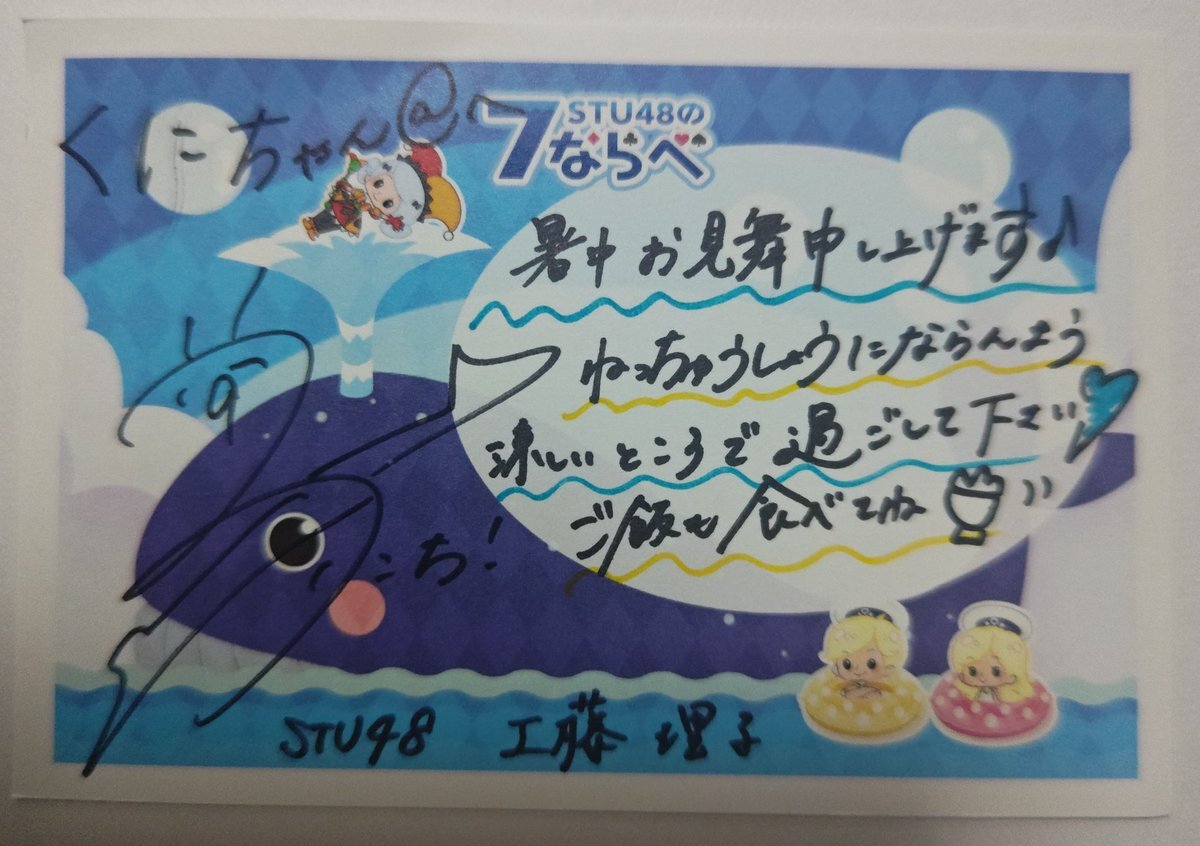 くにこちゃん@へ
STU48の
7ならべ
暑中お見舞申し上げます♪
ねっちゅうしょうにならんよう
涼しいところで過ごして下さい
ご飯も食べてね
りこち!
STU48 工藤理子